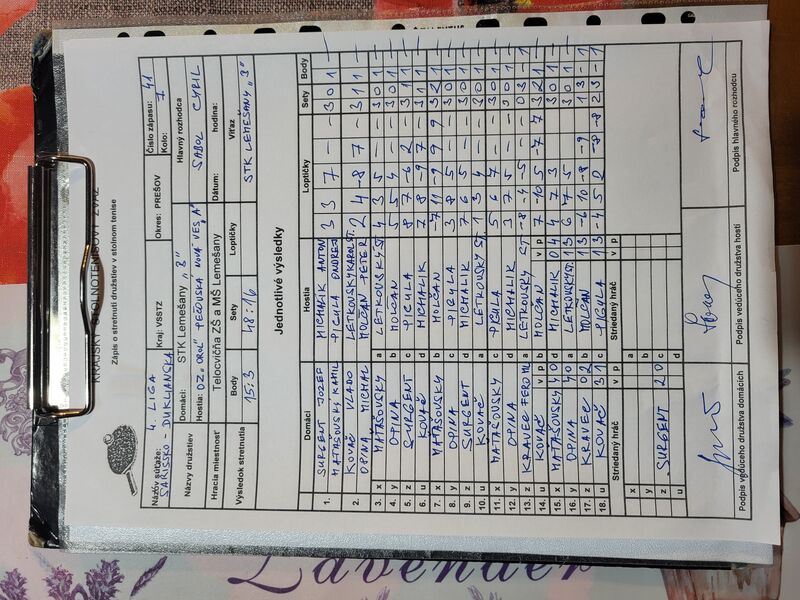 KRAJSKÝ STOLNOTENISOVÝ ZVÄZ
Zápis o stretnutí družstiev v stolnom tenise
Názov súťaže: 4. LIGA
ŠARIŠSKO - DUKLIANSKA
Kraj: VSSTZ
Okres: PREŠOV
Číslo zápasu: 41
Kolo: 7
Názvy družstiev
Domáci: STK Lemešany „B"
Hostia: OZ „OROL" PEČOVSKÁ NOVÁ VES „A"
Hlavný rozhodca
SABOL CYRIL
Hracia miestnosť
Telocvičňa ZŠ a MŠ Lemešany
Dátum:
hodina:
Výsledok stretnutia
Body 15:3
Sety 48:16
Loptičky
Víťaz
STK LEMEŠANY „B"
Jednotlivé výsledky
Domáci Hostia Loptičky Sety Body
1. SURGENT JOZEF MICHALIK ANTON 3 3 7 - - 3 0 1 -
MATAŠOVSKÝ KAMIL PIGULA ONDREJ
2. KOVAČ VLADO LETKOVSKÝ KAROL ST. 2 4 -8 7 - 3 1 1 -
OPINA MICHAL MOLČAN PETER
3. x MATAŠOVSKÝ a LETKOVSKÝ ST 4 3 5 - - 3 0 1 -
4. y OPINA b MOLČAN 5 5 4 - - 3 0 1 -
5. z SURGENT c PIGULA
6. u KOVAČ d MICHALIK
7. x MATAŠOVSKÝ b MOLČAN 7 11 -9 9 9 3 2 1 -
8. y OPINA c PIGULA 3 8 5 - - 3 0 1 -
9. z SURGENT d MICHALIK
10. u KOVAČ a LETKOVSKÝ ST. 1 3 4 - - 3 0 1 -
11. x MATAŠOVSKÝ c PIGULA 5 6 7 - - 3 0 1 -
12. y OPINA d MICHALIK 3 7 5 - - 3 0 1 -
13. z KRAVEC FERO ML a LETKOVSKÝ ST -8 -4 -5 - - 0 3 - 1
14. u KOVAČ b MOLČAN 7 -10 5 -7 7 3 2 1
15. x MATAŠOVSKÝ 4 0 d MICHALIK 0 4 4 7 3 - - 3 0 1 -
16. y OPINA 4 0 a LETKOVSKÝ ST. 1 3 6 7 5 - - 3 0 1 -
17. z KRAVEC 0 2 b MOLČAN 1 3 -6 10 -8 -9 1 3 - 1
18. u KOVAČ 3 1 c PIGULA 1 3 -4 5 0 -8 -8 2 3 - 1
Striedaný hráč v p Striedaný hráč v p
x a
y b
z SURGENT 2 0 c
u d
Podpis vedúceho družstva domácich
Podpis vedúceho družstva hostí
Podpis hlavného rozhodcu
Lavender